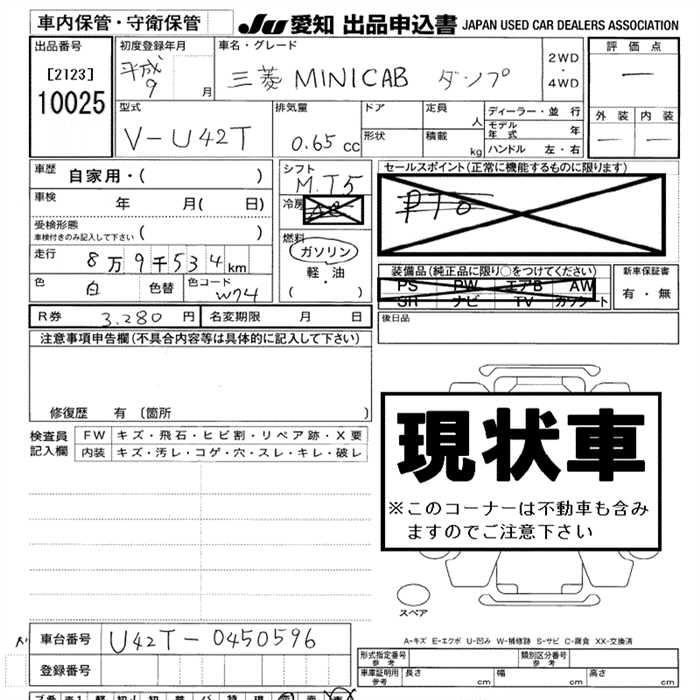 車内保管・守衛保管
JU 愛知 出品申込書 JAPAN USED CAR DEALERS ASSOCIATION
出品番号
[2123]
10025
初度登録年月
平成
9 月
車名・グレード
三菱 MINICAB ダンプ
2WD
・
4WD
評価点
—
外装 内装
— —
型式
V-U42T
排気量
0.65 cc
ドア
形状
定員
人
積載
kg
ディーラー・並 行
モデル年式 年
ハンドル 左・右
車歴 自家用・( )
車検 年 月( 日)
受検形態
車検付きのみ記入して下さい ( )
走行 8万9千534km
色 白 色替 色コード W74
シフト
M.T5
冷房
AC
燃料
ガソリン
軽・油
( ・ )
セールスポイント(正常に機能するものに限ります)
装備品(純正品に限り○をつけてください)
PS PW エアB AW
SR ナビ TV カセット
新車保証書
有・無
R券 3.280 円 名変期限 月 日
後日品
注意事項申告欄(不具合内容等は具体的に記入して下さい)
修復歴 有〔箇所 〕
検査員
記入欄
FW キズ・飛石・ヒビ割・リペア跡・X要
内装 キズ・汚レ・コゲ・穴・スレ・キレ・破レ
現状車
※このコーナーは不動車も含み
ますのでご注意下さい
スペア
A-キズ E-エクボ U-凹み W-補修跡 S-サビ C-腐食 XX-交換済
車台番号 U42T-0450596
登録番号
形式指定番号
参考
類別区分番号
参考
車庫証明用
参考
長さ cm 幅 cm 高さ cm